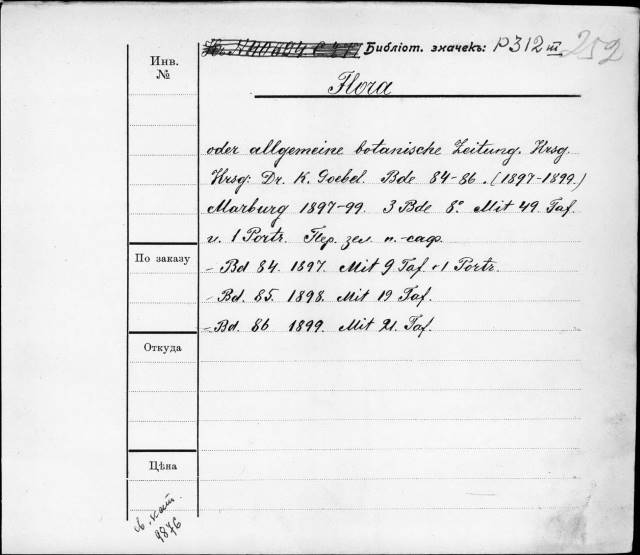 Библіот. значекъ: P312 III 252
Инв.
№
Flora
oder allgemeine botanische Zeitung. Hrsg.
Hrsg: Dr. K. Goebel. Bde 84-86. (1897-1899.)
Marburg 1897-99. 3 Bde 8°. Mit 49 Taf.
u. 1 Portr. Пер. зел. п.-саф.
По заказу
- Bd 84. 1897. Mit 9 Taf. + 1 Portr.
- Bd. 85. 1898. Mit 19 Taf.
- Bd. 86 1899. Mit 21. Taf.
Откуда
Цѣна
кат.
9876